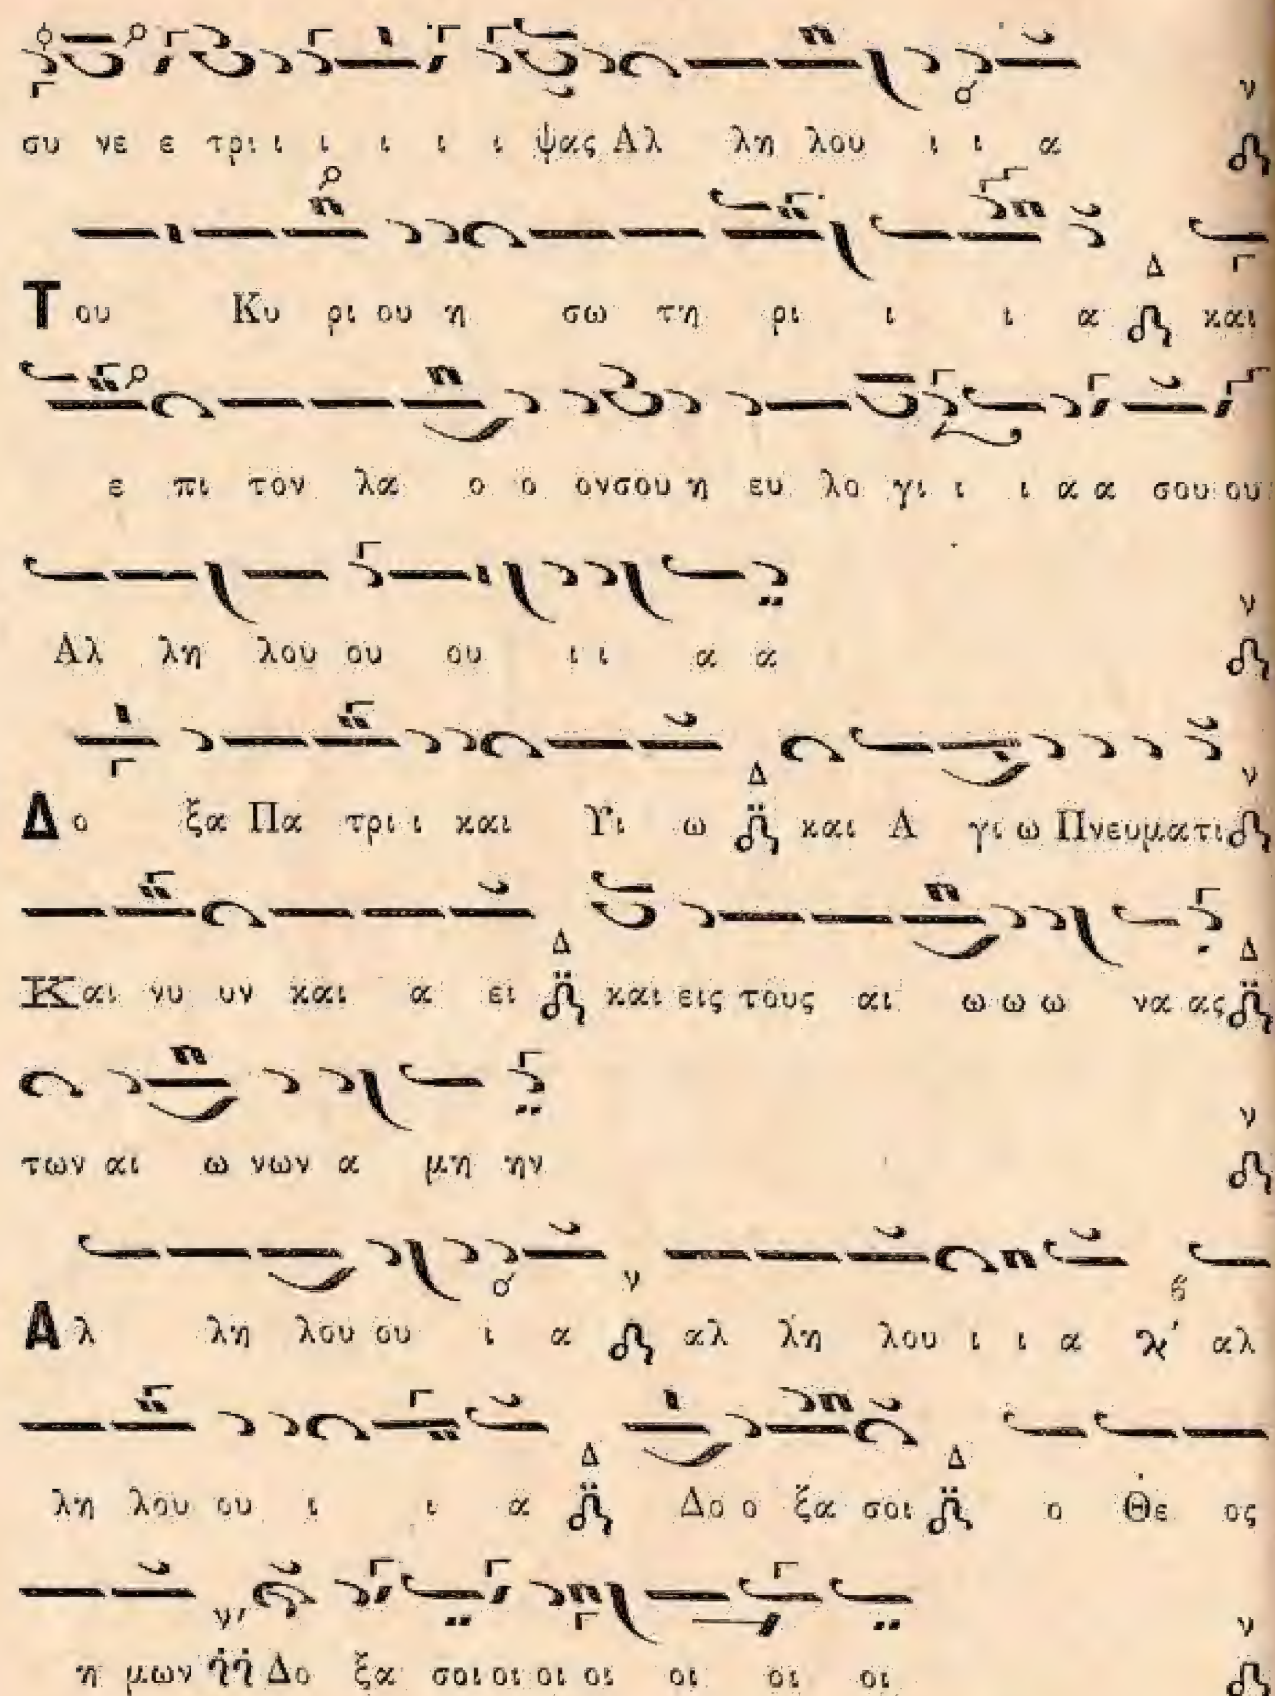 συ νε ε τρι ι ι ι ι ι ι ψας Αλ λη λου ι ι α ν
Του Κυ ρι ου η σω τη ρι ι ι α Δ και
ε πι τον λα ο ο ονσου η ευ λο γι ι ι α α σου ου
Αλ λη λου ου ου ι ι α α ν
Δο ξα Πα τρι ι και Υι ω Δ και Α γι ω Πνευματι ν
Και νυ υν και α ει Δ και εις τους αι ω ω ω να ας Δ
των αι ω νων α μη ην ν
Αλ λη λου ου ι α ν αλ λη λου ι ι α αλ
λη λου ου ι ι α Δ Δο ο ξα σοι Δ ο Θε ος
η μων Δο ξα σοι οι οι οι οι οι οι ν